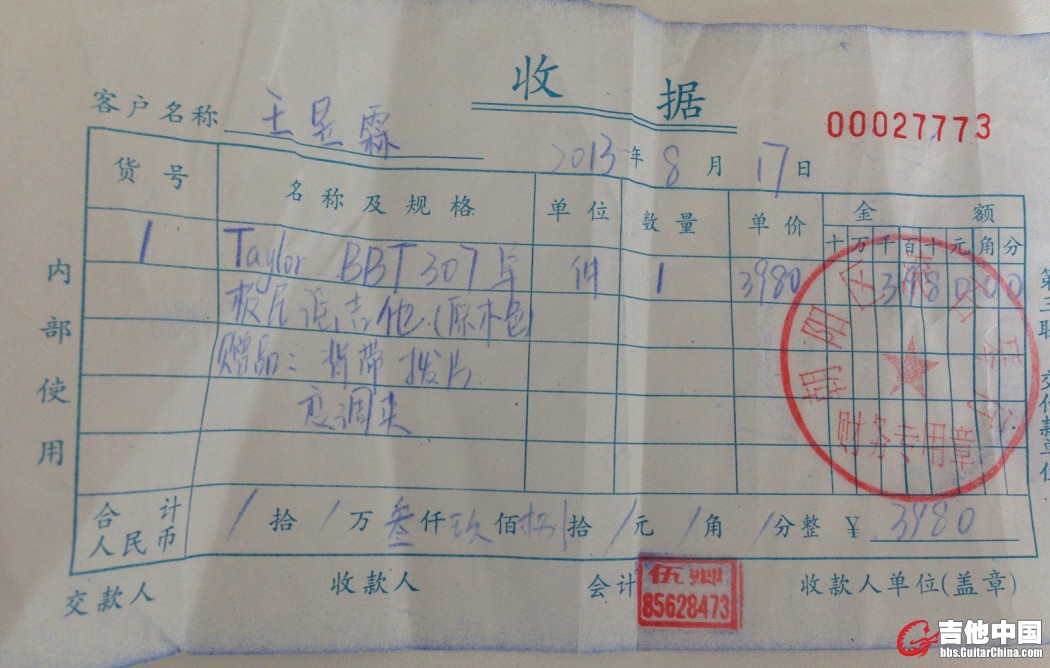 收 据
00027773
客户名称 王昱霖
2013年 8月 17日
货号 名称及规格 单位 数量 单价 金额
十万千百十元角分
1 Taylor BBT 307 单 件 1 3980 398000
板民谣吉他(原木色)
赠品: 背带 拨片
变调夹
内部使用
第三联 交付款单位
合计人民币 / 拾 / 万 叁 仟 玖 佰 捌 拾 / 元 / 角 / 分整 ¥ 3980
交款人 收款人 会计 收款人单位(盖章)
朝阳区
财务专用章
伍
85628473
吉他中国
bbs.GuitarChina.com